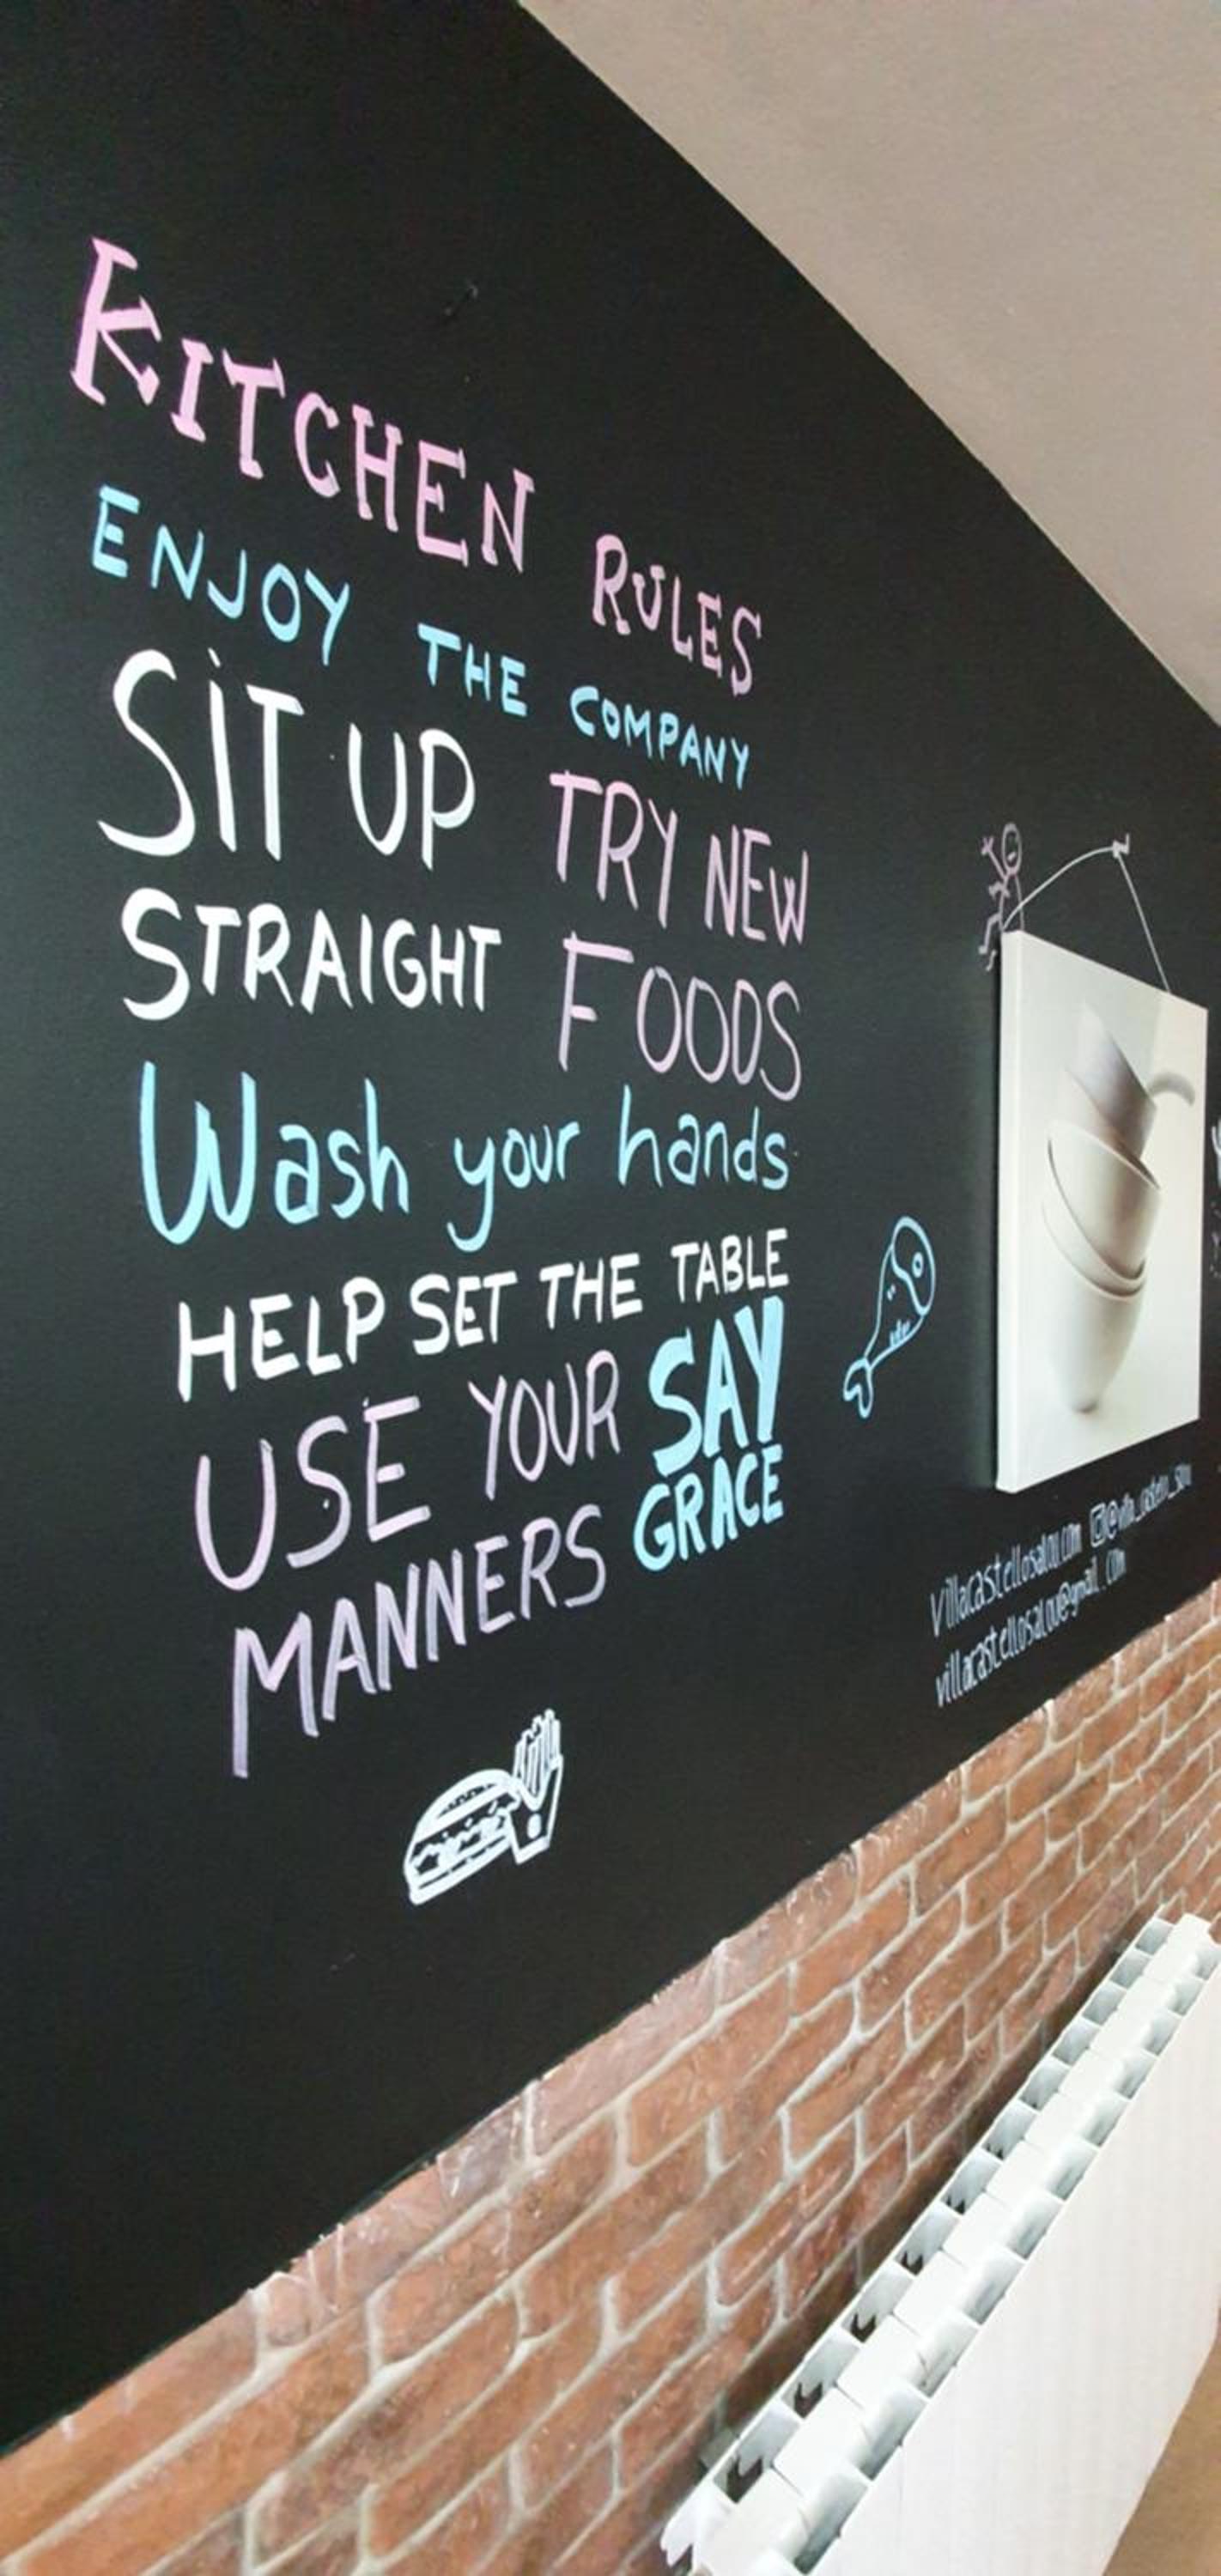 KITCHEN RULES
ENJOY THE COMPANY
SIT UP
STRAIGHT
TRY NEW
FOODS
Wash your hands
HELP SET THE TABLE
USE YOUR
MANNERS
SAY
GRACE
villacastellosalou.com
villacastellosalou@gmail.com